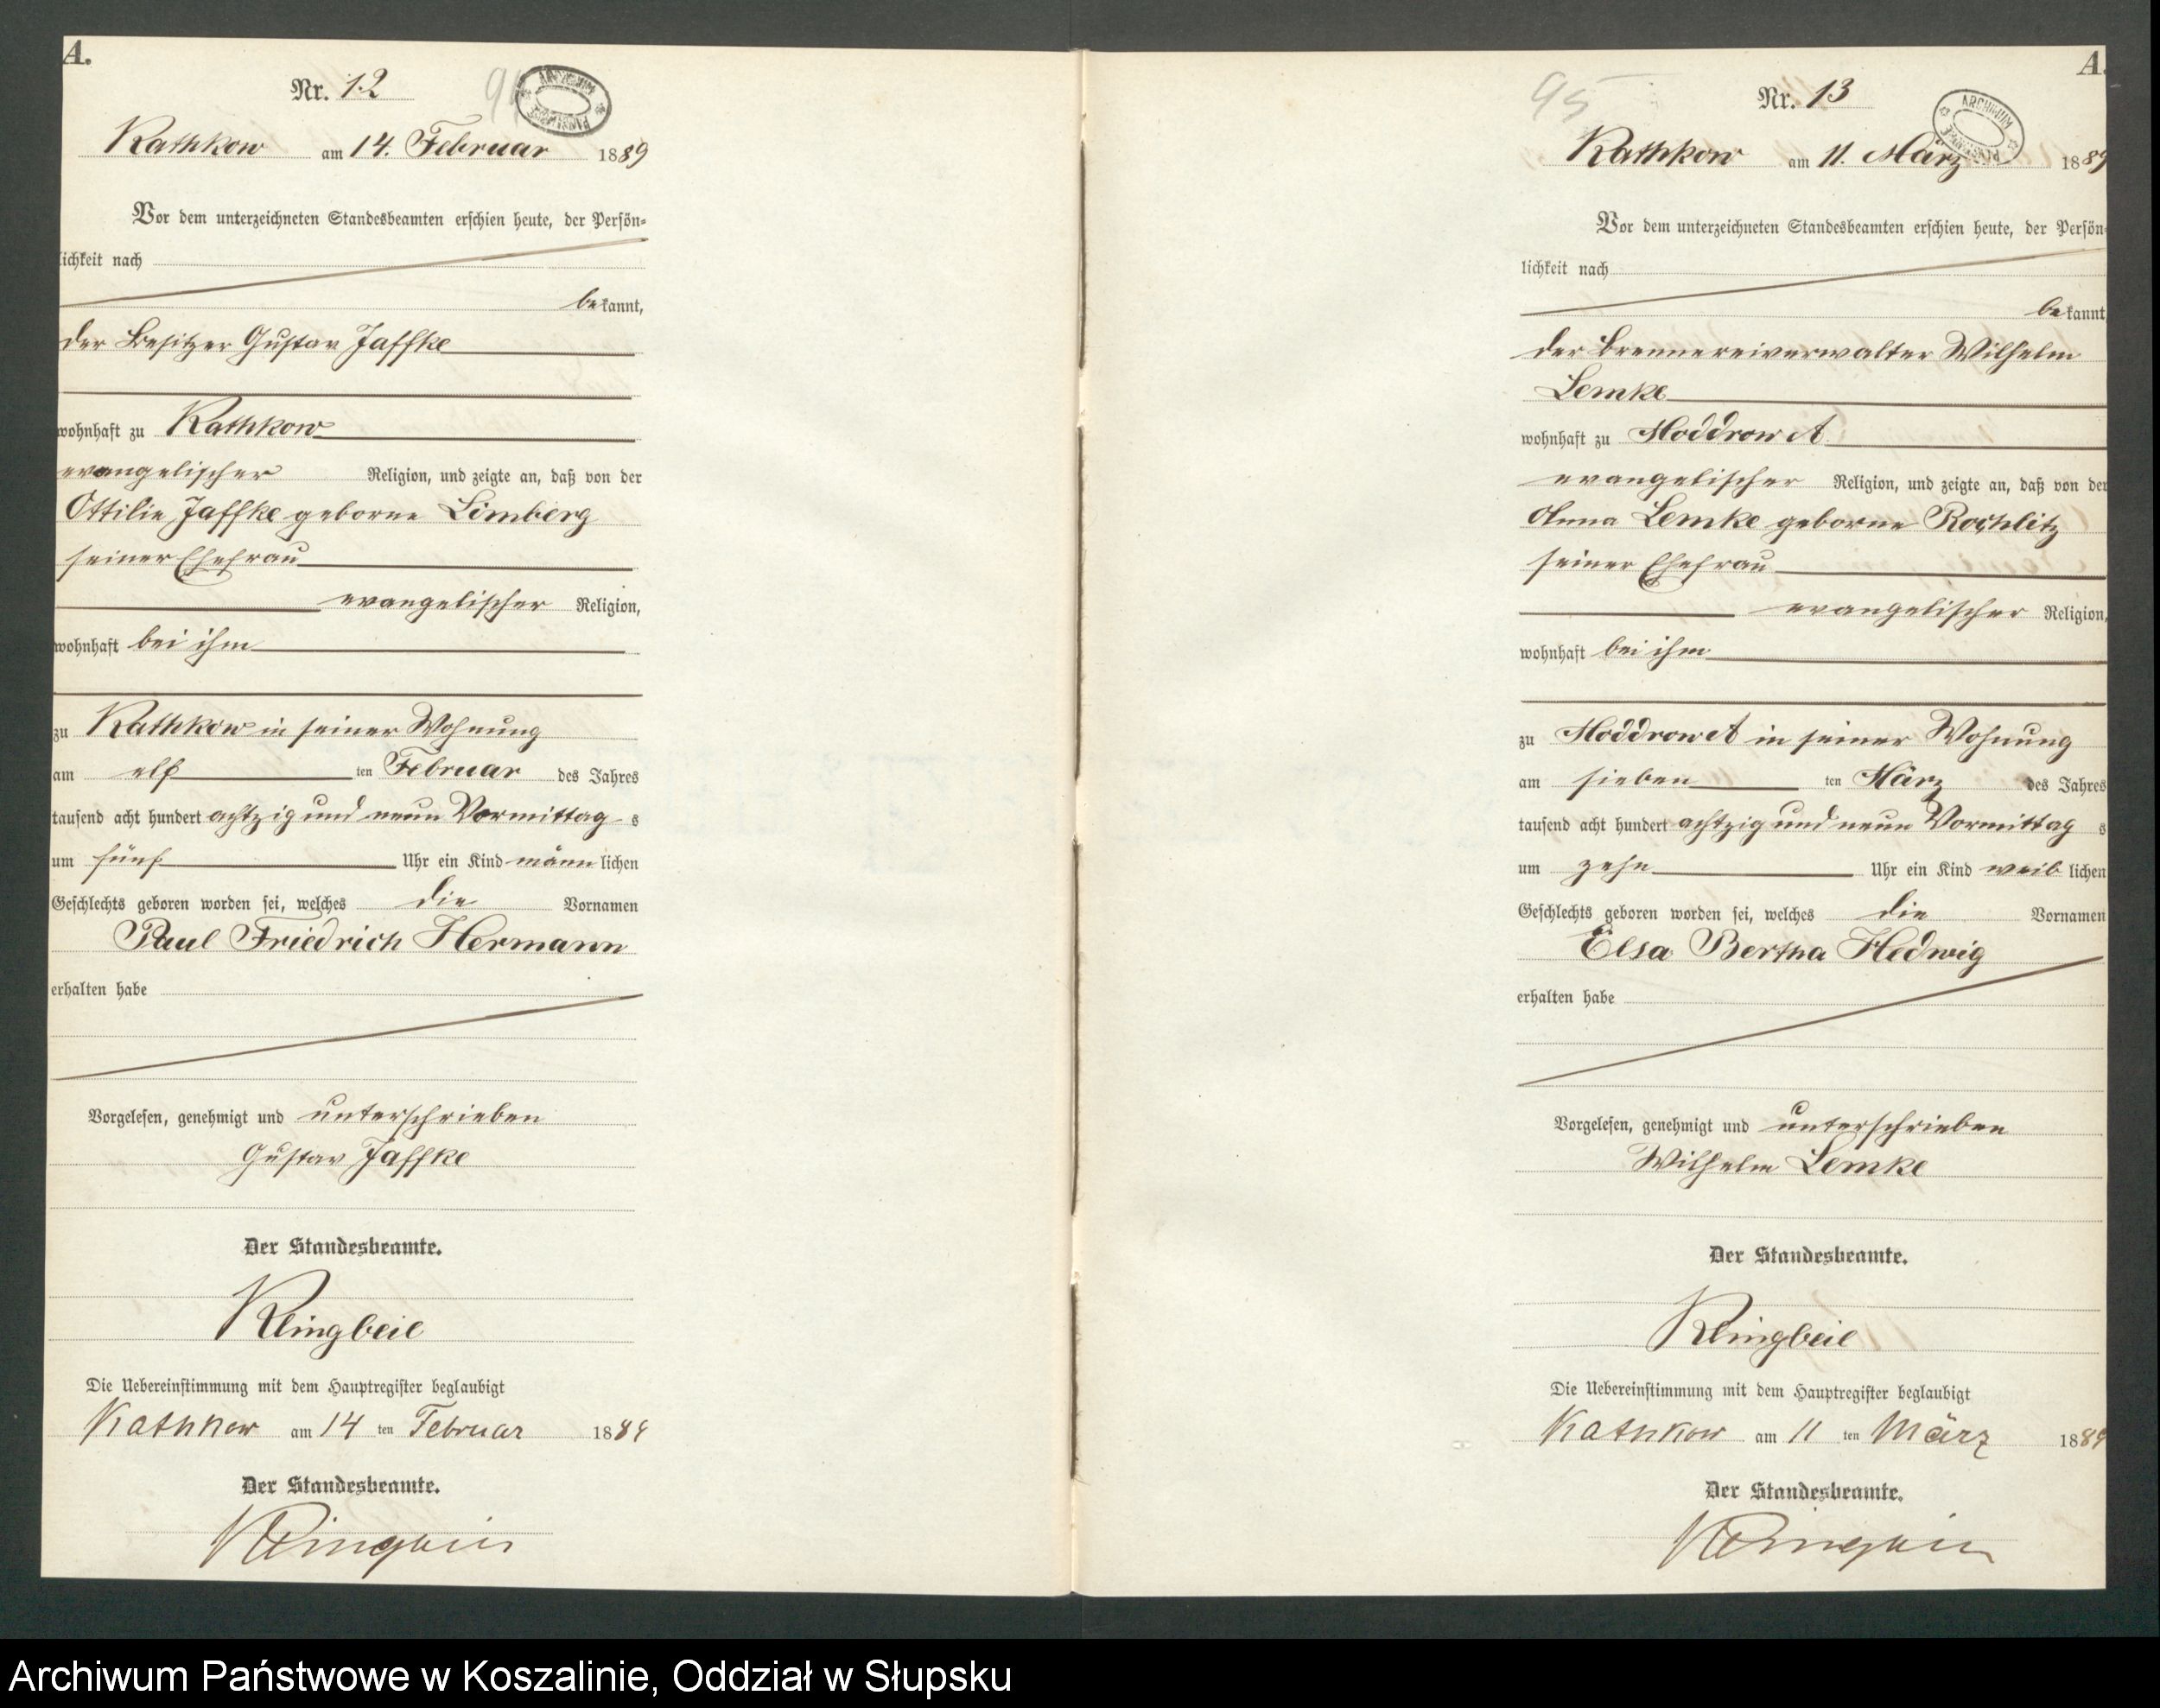 A.
Nr. 12
94
ARCHIWUM PAŃSTWOWE
Rathkow am 14. Februar 1889
Vor dem unterzeichneten Standesbeamten erschien heute, der Persön-
lichkeit nach
bekannt,
der Besitzer Gustav Jaffke
wohnhaft zu Rathkow
evangelischer Religion, und zeigte an, daß von der
Ottilie Jaffke geborne Limberg
seiner Ehefrau
evangelischer Religion,
wohnhaft bei ihm
zu Rathkow in seiner Wohnung
am elf ten Februar des Jahres
tausend acht hundert achtzig und neun Vormittags
um fünf Uhr ein Kind männlichen
Geschlechts geboren worden sei, welches die Vornamen
Paul Friedrich Hermann
erhalten habe
Vorgelesen, genehmigt und unterschrieben
Gustav Jaffke
Der Standesbeamte.
Klingbeil
Die Uebereinstimmung mit dem Hauptregister beglaubigt
Rathkow am 14 ten Februar 1889
Der Standesbeamte.
Klingbeil
A.
95
Nr. 13
ARCHIWUM PAŃSTWOWE
Rathkow am 11. März 1889
Vor dem unterzeichneten Standesbeamten erschien heute, der Persön-
lichkeit nach
bekannt
der Brennereiverwalter Wilhelm
Lemke
wohnhaft zu Moddrow A
evangelischer Religion, und zeigte an, daß von der
Anna Lemke geborne Rochlitz
seiner Ehefrau
evangelischer Religion,
wohnhaft bei ihm
zu Moddrow A in seiner Wohnung
am sieben ten März des Jahres
tausend acht hundert achtzig und neun Vormittags
um zehn Uhr ein Kind weiblichen
Geschlechts geboren worden sei, welches die Vornamen
Elsa Bertha Hedwig
erhalten habe
Vorgelesen, genehmigt und unterschrieben
Wilhelm Lemke
Der Standesbeamte.
Klingbeil
Die Uebereinstimmung mit dem Hauptregister beglaubigt
Rathkow am 11 ten März 1889
Der Standesbeamte.
Klingbeil
Archiwum Państwowe w Koszalinie, Oddział w Słupsku